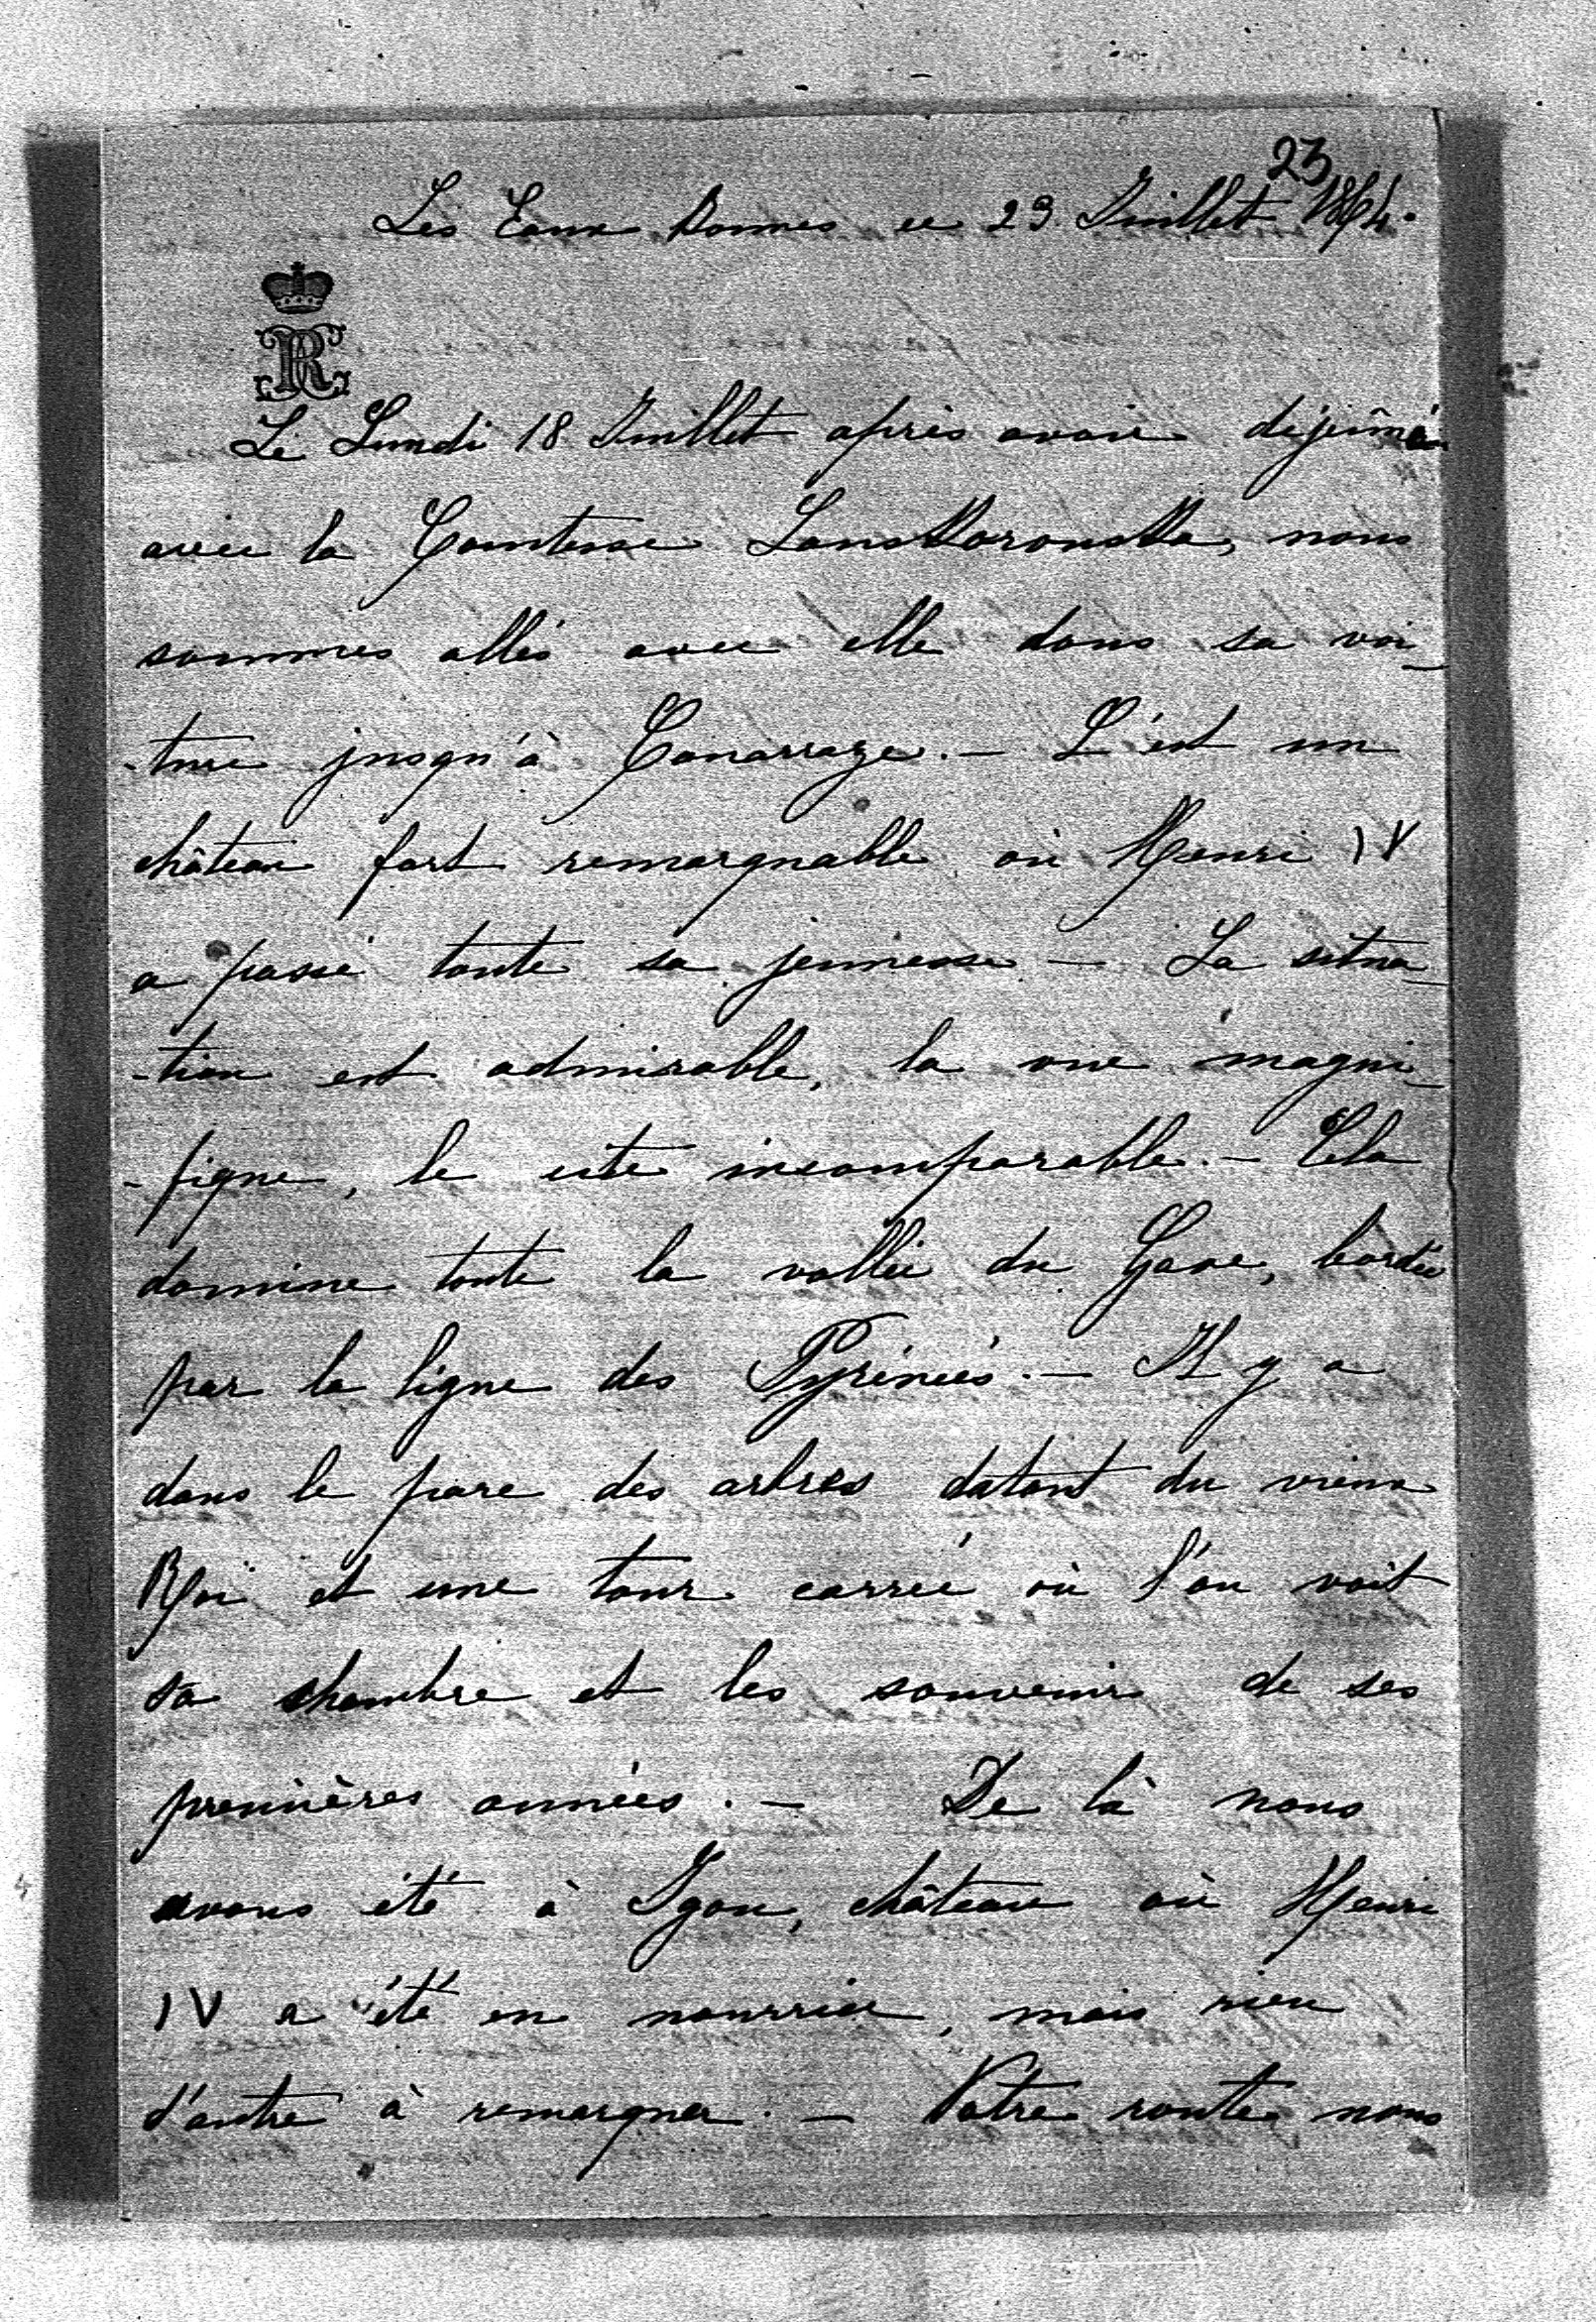 23
Les Eaux Bonnes ce 29 Juillet 1864.
Le Lundi 18 Juillet après avoir déjeûné
avec la Comtesse Lanskoronska, nous
sommes allés avec elle dans sa voi-
-ture jusqu'à Coarraze. — C'est un
château fort remarquable où Henri IV
a passé toute sa jeunesse — La situa-
-tion est admirable, la vue magni-
-fique, le site incomparable. — Cela
domine toute la vallée du Gave, bordée
par la ligne des Pyrénées. — Il y a
dans le parc des arbres datant du vieux
Roi et une tour carrée où l'on voit
sa chambre et les souvenirs de ses
premières années. — De là nous
avons été à Igon, château où Henri
IV a été en nourrice, mais rien
d'autre à remarquer. — Notre route nous